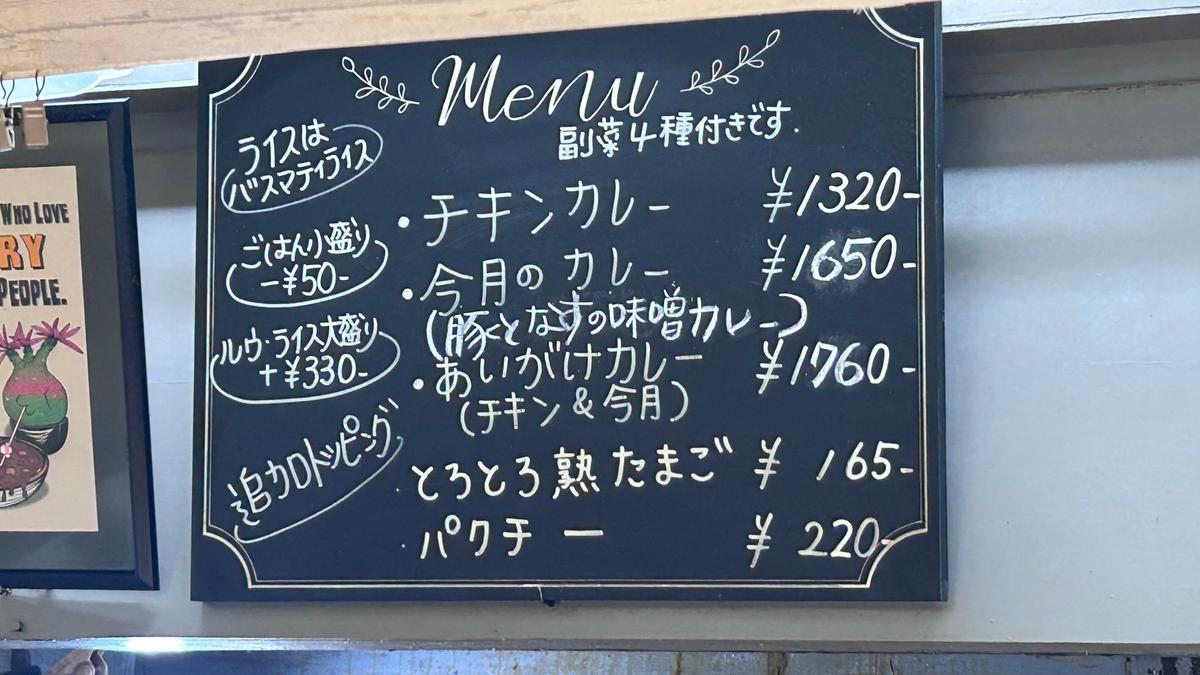 Menu
副菜4種付きです.
ライスは
バスマティライス
・チキンカレー ¥1320-
ごはん小盛り
-¥50-
・今月の カレー ¥1650-
(豚となすの味噌カレー)
ルウ・ライス大盛り
+¥330-
・あいがけカレー ¥1760-
(チキン&今月)
追加トッピング
とろとろ熟たまご ¥165-
・パクチー ¥220-
WHO LOVE
RY
PEOPLE.